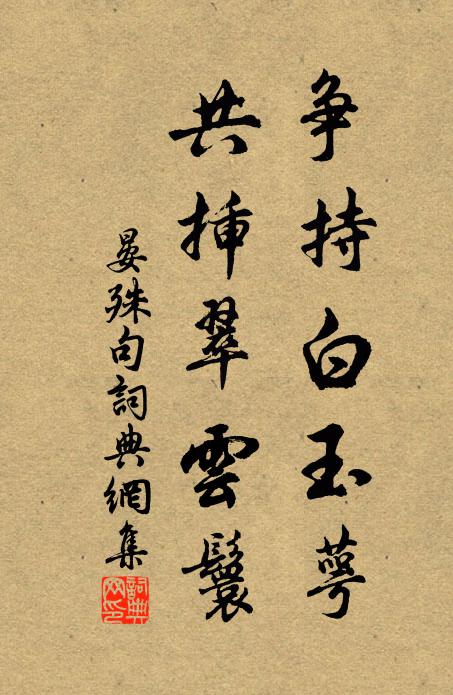 争持白玉萼
共挿翠雲鬟
晏殊句詞典網集
詞典网印